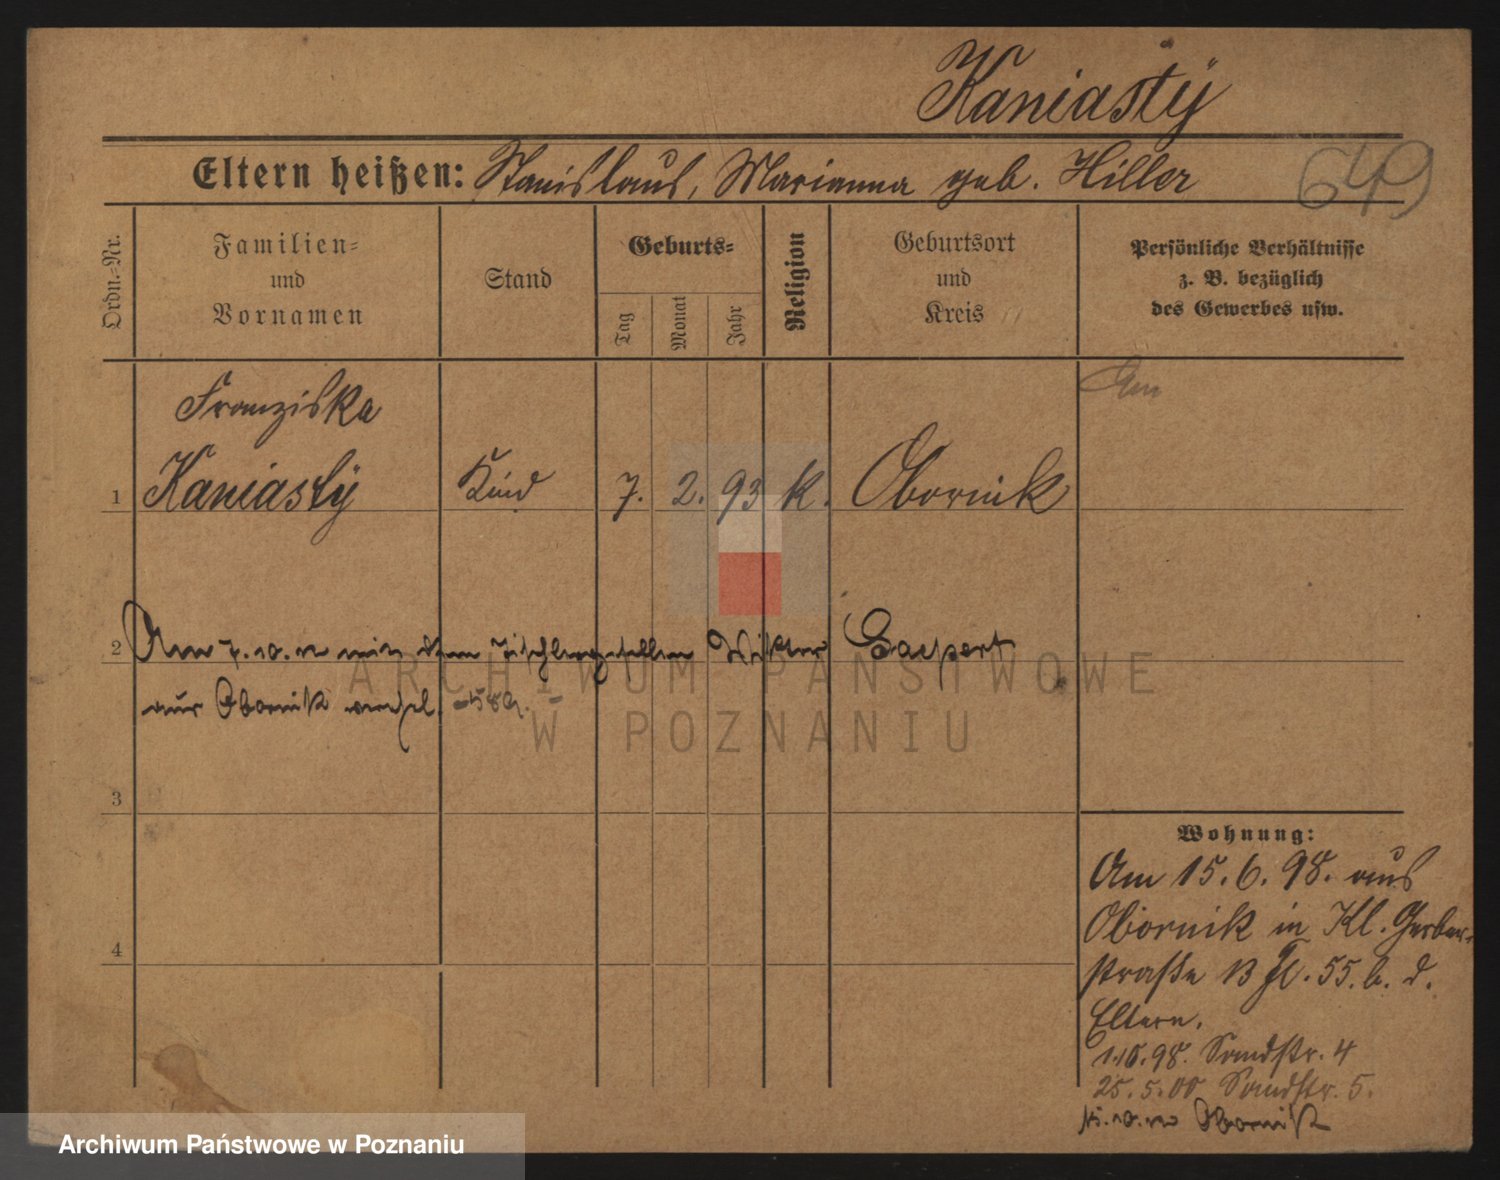 Kaniastÿ
Eltern heißen: Stanislaus, Marianna geb. Hiller
649
Ordn.-Nr.
Familien-
und
Vornamen
Stand
Geburts-
Tag
Monat
Jahr
Religion
Geburtsort
und
Kreis
Persönliche Verhältnisse
z. B. bezüglich
des Gewerbes usw.
Am
Franziska
1 Kaniastÿ Kind 7. 2. 93 k. Obornik
2 Am mit dem Tischlergesellen Caspert
aus Obornik
ARCHIWUM PAŃSTWOWE
W POZNANIU
3
4
Wohnung:
Am 15.6.98. aus
Obornik in Kl. Gerber-
straße 13 55. b. d.
Eltern.
1.10.98. Sandstr. 4
25.5.00 Sandstr. 5.
Obornik
Archiwum Państwowe w Poznaniu